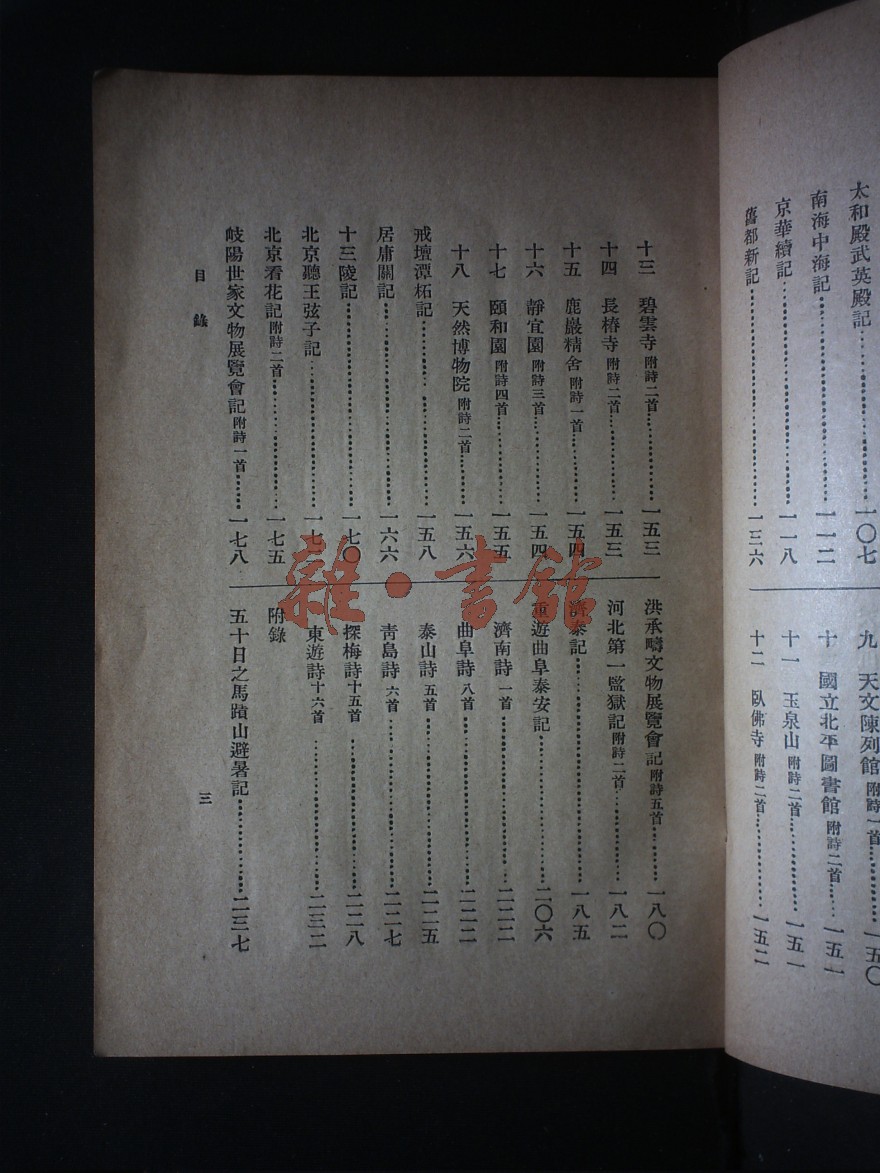 太和殿武英殿記……一〇七
南海中海記……一一二
京華續記……一一八
舊都新記……一三六
九 天文陳列館附詩一首……一五〇
十 國立北平圖書館附詩二首……一五一
十一 玉泉山附詩二首……一五一
十二 臥佛寺附詩二首……一五二
十三 碧雲寺附詩二首……一五三
十四 長椿寺附詩二首……一五三
十五 鹿巖精舍附詩一首……一五四
十六 靜宜園附詩三首……一五四
十七 頤和園附詩四首……一五五
十八 天然博物院附詩二首……一五六
戒壇潭柘記……一五八
居庸關記……一六六
十三陵記……一七〇
北京聽王弦子記……一七
北京看花記附詩二首……一七五
岐陽世家文物展覽會記附詩一首……一七八
洪承疇文物展覽會記附詩五首……一八〇
河北第一監獄記附詩二首……一八二
濟泰記……一八五
重遊曲阜泰安記……二〇六
濟南詩一首……二二二
曲阜詩八首……二二二
泰山詩五首……二二五
青島詩六首……二二七
探梅詩十五首……二二八
東遊詩十六首……二三二
附錄
五十日之馬蹟山避暑記……二三七
目錄
三
雜·書館